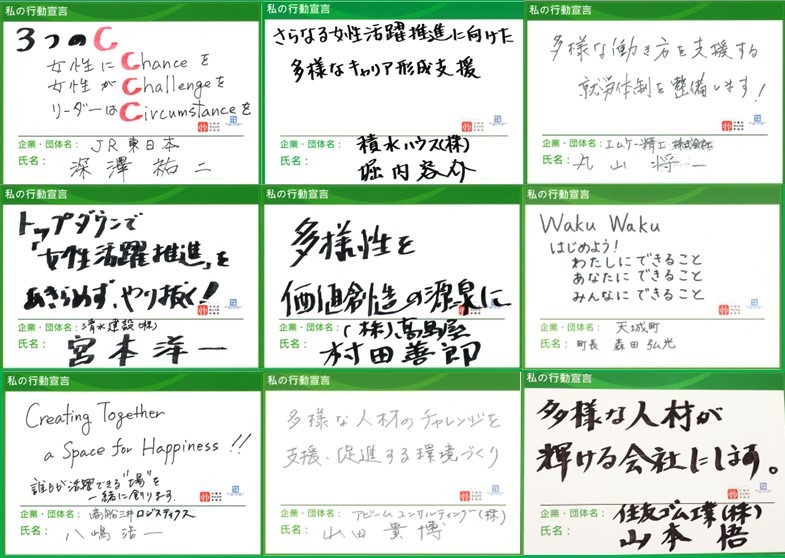 私の行動宣言
3つのC
女性にChanceを
女性がChallengeを
リーダーはCircumstanceを
企業・団体名：JR東日本
氏名：深澤祐二
私の行動宣言
さらなる女性活躍推進に向けた
多様なキャリア形成支援
企業・団体名：積水ハウス(株)
氏名：堀内容介
私の行動宣言
多様な働き方を支援する
就労体制を整備します!
企業・団体名：エムケー精工 株式会社
氏名：丸山将一
私の行動宣言
トップダウンで
「女性活躍推進」を
あきらめず、やり抜く!
企業・団体名：清水建設(株)
氏名：宮本洋一
私の行動宣言
多様性を
価値創造の源泉に
企業・団体名：(株)高島屋
氏名：村田善郎
私の行動宣言
Waku Waku
はじめよう!
わたしにできること
あなたにできること
みんなにできること
企業・団体名：天城町
氏名：町長 森田弘光
私の行動宣言
Creating Together
a Space for Happiness!!
誰もが活躍できる"場"を
一緒に創ります.
企業・団体名：商船三井ロジスティクス
氏名：八嶋浩一
私の行動宣言
多様な人材のチャレンジを
支援、促進する環境づくり
企業・団体名：アビームコンサルティング(株)
氏名：山田貴博
私の行動宣言
多様な人材が
輝ける会社にします。
企業・団体名：住友ゴム工業(株)
氏名：山本悟